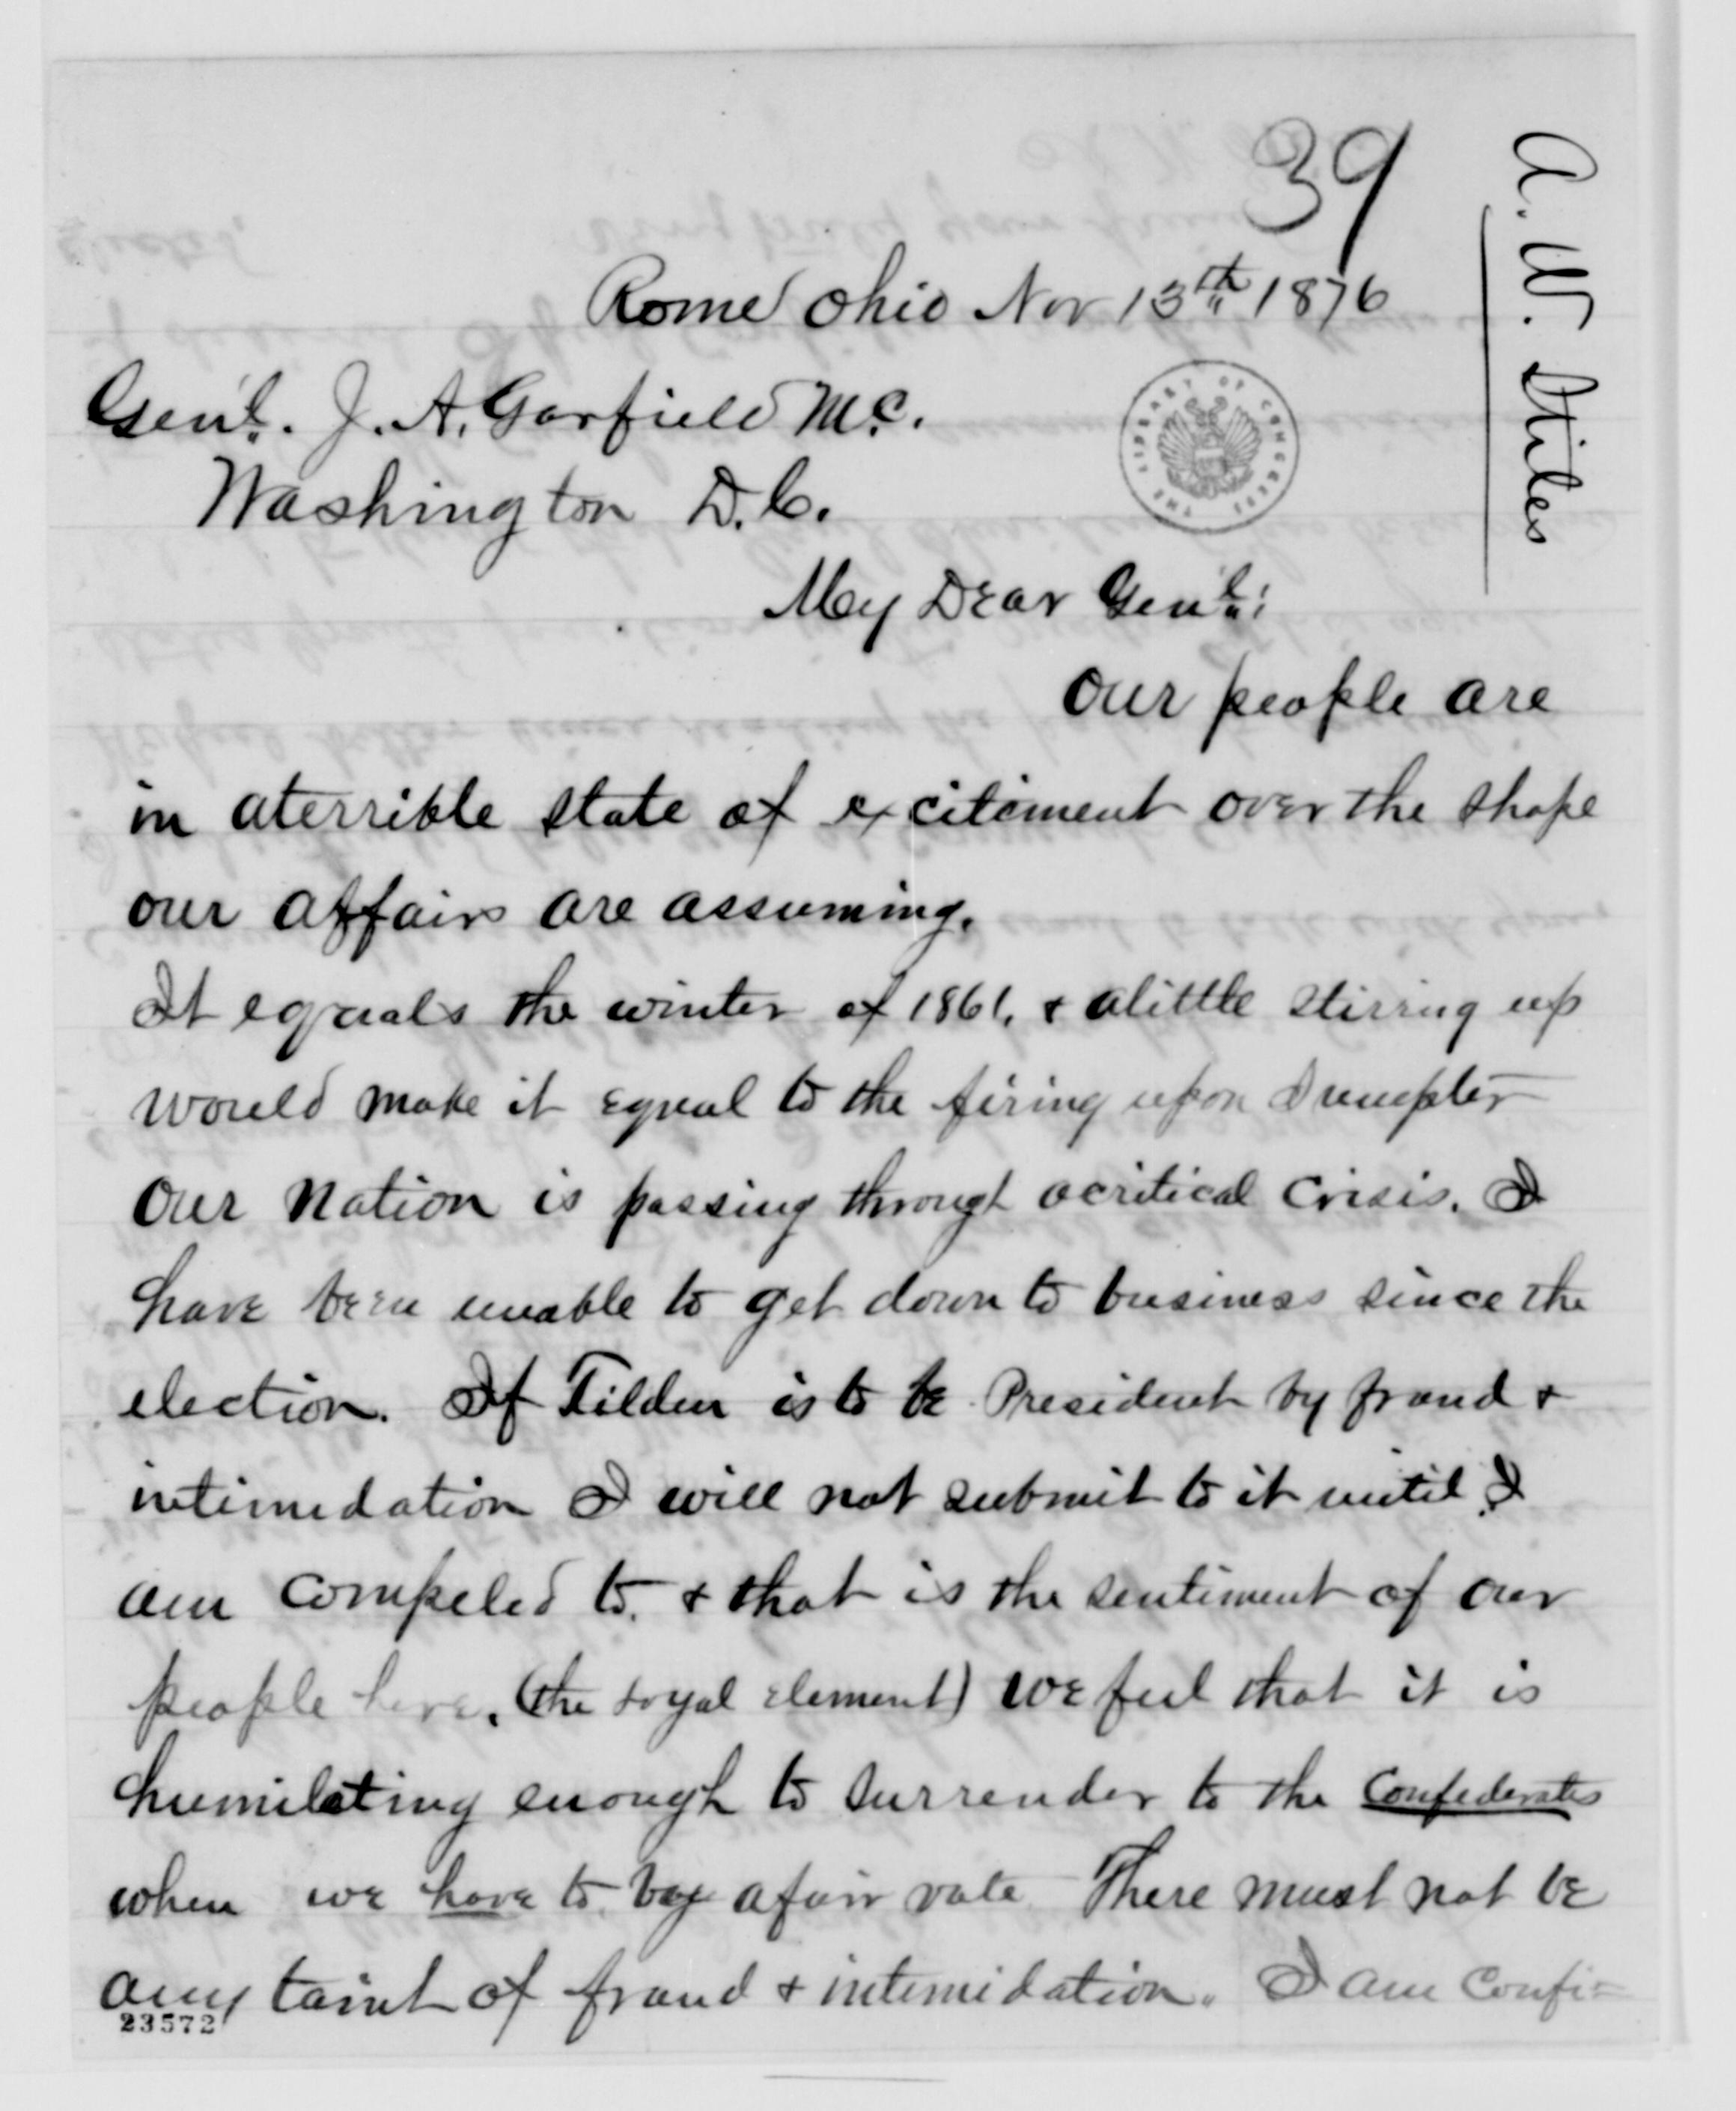 39
A. W. Stiles
Rome Ohio Nov 13th 1876
Gen'l. J. A. Garfield M.C.
Washington D.C.
THE LIBRARY OF CONGRESS
My Dear Gen'l:
Our people are
in aterrible state of excitement over the shape
our affairs are assuming.
It equals the winter of 1861, & alittle stirring up
would make it equal to the firing upon Sumpter
Our Nation is passing through acritical Crisis. I
have been unable to get down to business since the
election. If Tilden is to be President by fraud &
intimidation I will not submit to it until I
am compeled to. & that is the sentiment of our
people here. (the loyal element) We feel that it is
humilating enough to surrender to the Confederates
when we have to by afair vote There must not be
any taint of fraud & intimidation. I am Confi=
23572